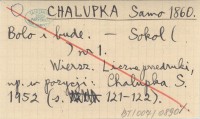 CHALUPKA Samo 1860.
Bolo i bude. — Sokol (
) nr 1.
Wiersz. Liczne przedruki,
np. w pozycji: Chalupka S.
1952 (s. 121-122).